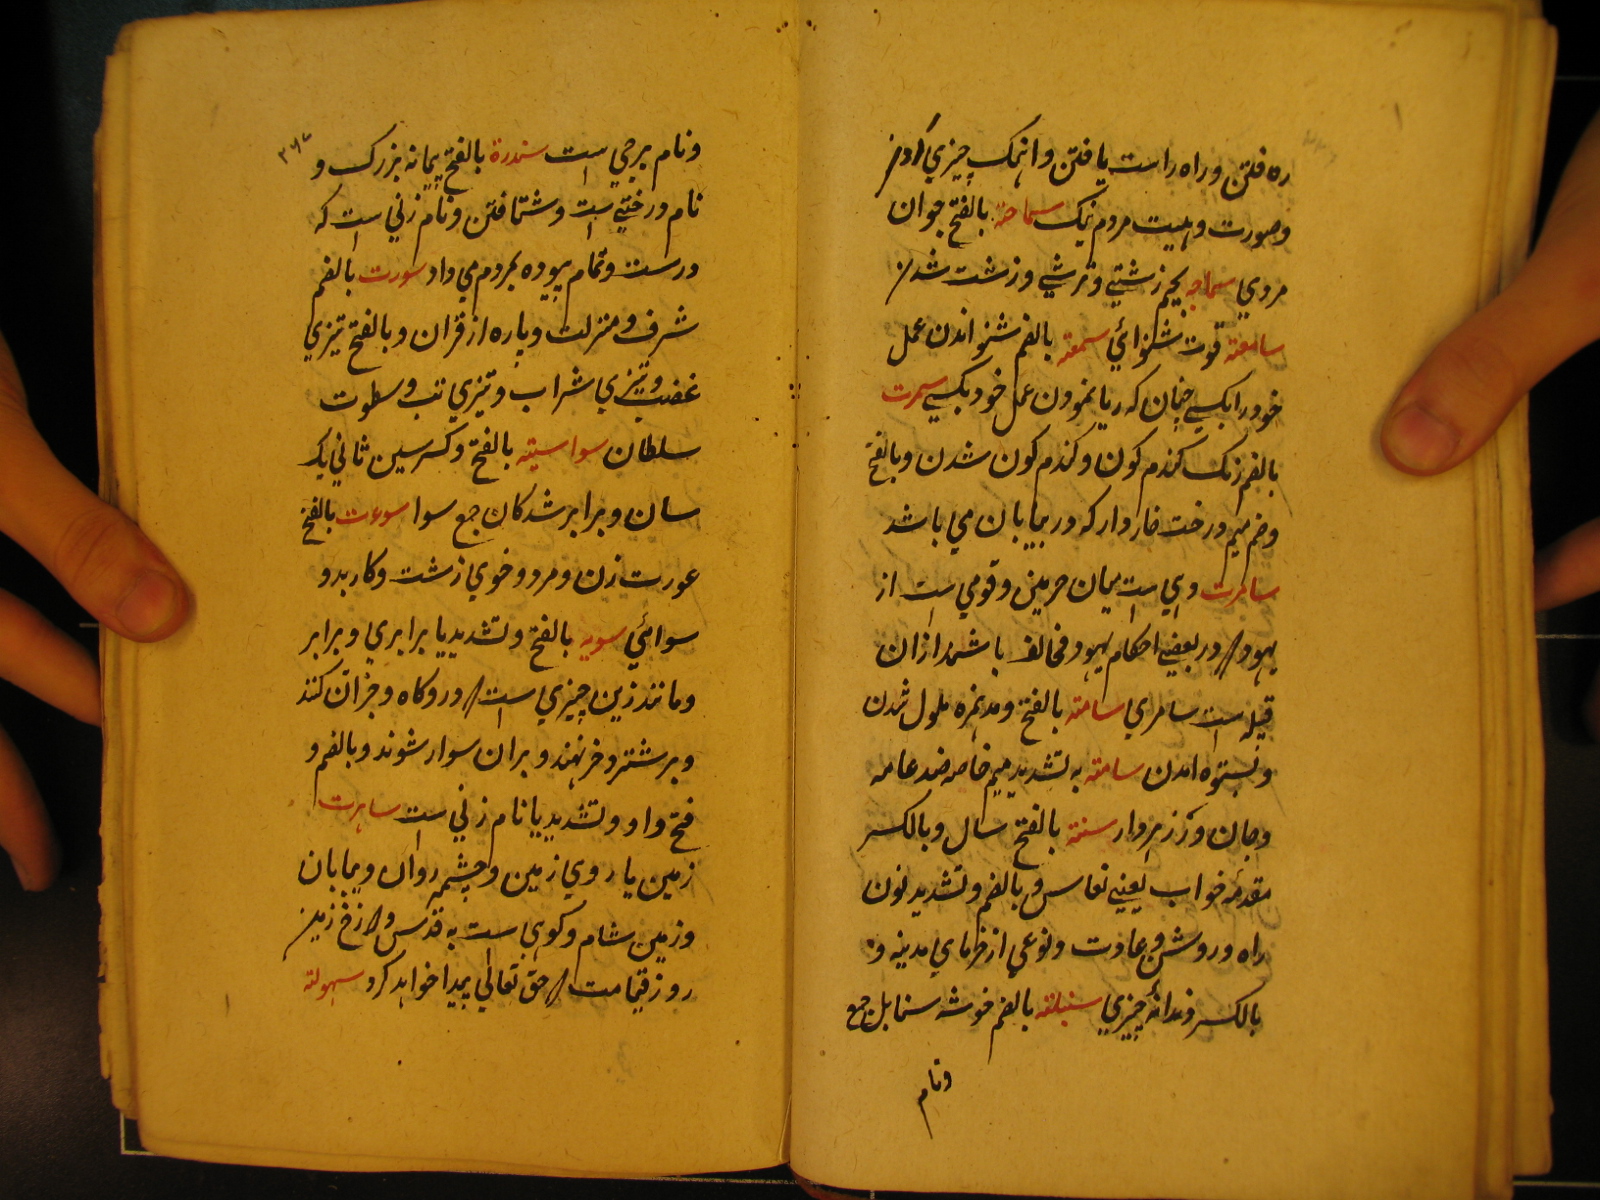 ره فتن و راه راست یافتن و اهنک چیزي کردن
و صورت و هیبت مردم نیک سماحة بالفتح جوان
مردي سماجه بجیم زشتي و ترشي و زشت شدن
سامعة قوت شنوائي سمعة بالضم شنواندن عمل
خود را بکسي چنان که ریا نمودن عمل خود بکسي سمرت
بالضم رنک کندم کون و کندم کون شدن و بالفتح
و ضم میم درخت خاردار که در بیابان مي باشد
سامرت دهي است میان حرمین و قومي است از
یهود که در بعضي احکام یهود مخالف باشند ازان
قبیله است سامري سامة بالفتح و مد همزه ملول شدن
و بستوه امدن سامة به تشدید میم خاصه ضد عامه
و جان وزر زهردار سنة بالفتح سال و بالکسر
مقدمه خواب یعني نعاس و بالضم و تشدید نون
راه و روش و عادت و نوعي از خرماي مدینه و
بالکسر دندانهٔ چیزي سنبلة بالضم خوشه سنابل جمع
و نام
۲۶۷
و نام برجي است سندرة بالفتح پیمانه بزرک و
نام درختي است و شتافتن و نام زني است که
درست و تمام پیوده بمردم مي داد سورت بالضم
شرف و منزلت و پاره از قران و بالفتح تیزي
غضب و تیزي شراب و تیزي تب و سطوت
سلطان سواسیة بالفتح و کسر سین ثاني یک
سان و برابر شدکان جمع سوا سوءت بالفتح
عورت زن و مرد و خوي زشت و کار بد و
سوائي سویه بالفتح و تشدید یا برابري و برابر
و مانند زین چیزي است که درو کاه و جزان کنند
و بر شتر و خر نهند و بران سوار شوند و بالضم و
فتح واو و تشدید یا نام زني است ساهرت
زمین یا روي زمین و چشمه روان و بیابان
و زمین شام و کوهي است به قدس و دوزخ زمین
روز قیامت که حق تعالی پیدا خواهد کرد سهولة